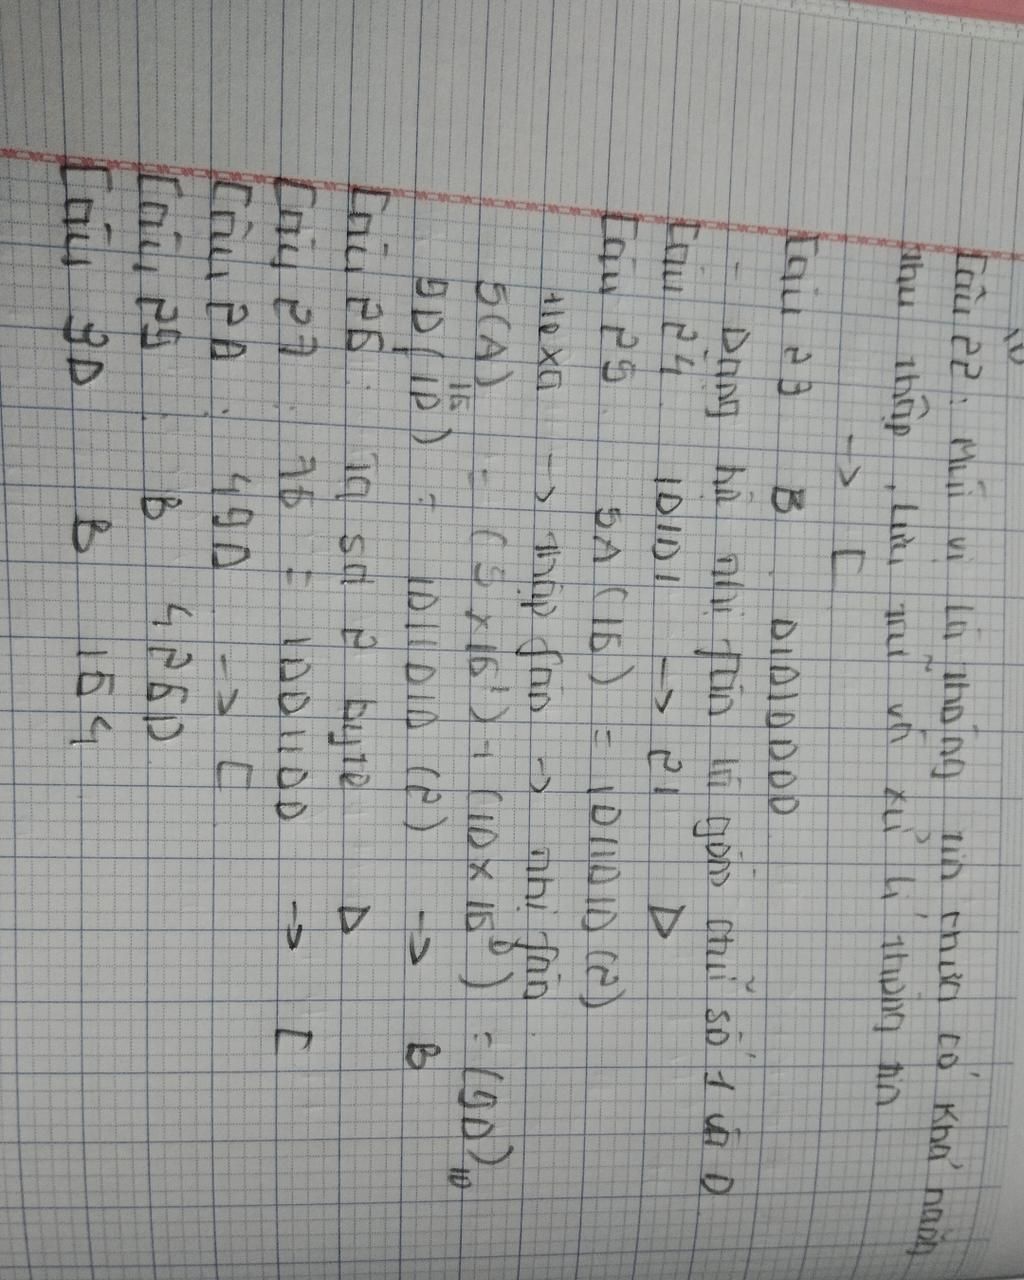 Câu 22: Muỗi vị là thông tin chưa có khả năng
thu thập, lưu trữ và xử lí thông tin
→ C
Câu 23 B 01010000
- Dạng hệ nhị phân là gồm chữ số 1 và 0
Câu 24 10101 → 21 D
Câu 25 5A (16) = 1011010 (2)
Hexa → thập phân → nhị phân.
5(A)16 = (5 × 16¹) + (10 × 16⁰) = (90)10
90 (10) = 1011010 (2) → B
Câu 26 : Ta số 2 byte D
Câu 27 : 76 = 1001100 → C
Câu 28 : 490 → C
Câu 29 : B 4260
Câu 30 B 164